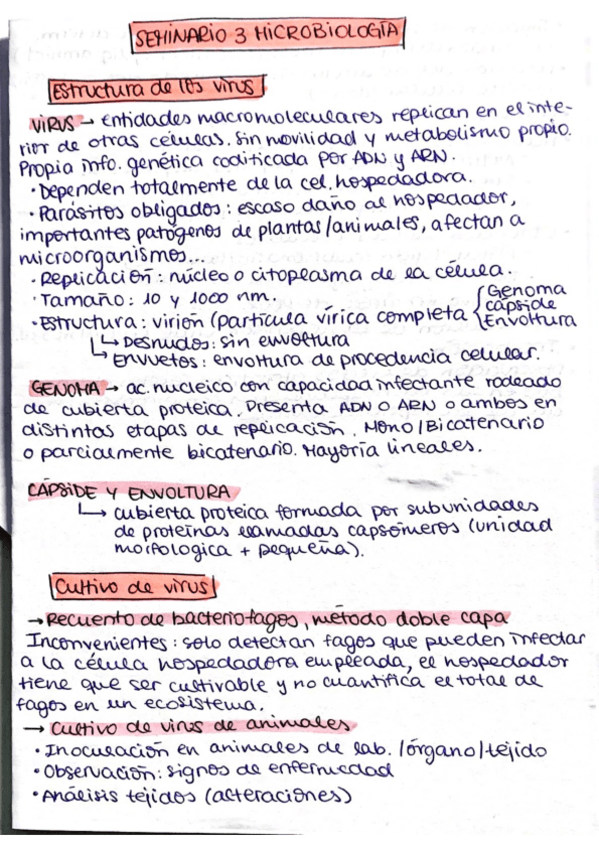 SEMINARIO 3 MICROBIOLOGÍA
Estructura de los virus
VIRUS → entidades macromoleculares replican en el inte-
rior de otras celulas. Sin movilidad y metabolismo propio.
Propia info. genética codificada por ADN y ARN.
· Dependen totalmente de la cel. hospedadora.
· Parásitos obligados: escaso daño al hospedador,
importantes patógenos de plantas/animales, afectan a
microorganismos...
· Replicación: núcleo o citoplasma de la célula.
· Tamaño: 10 y 1000 nm.
· Estructura: virión (partícula vírica completa { Genoma
cápside
Envoltura
↳ Desnudos: sin envoltura
↳ Envueltos: envoltura de procedencia celular.
GENOMA → ac. nucleico con capacidad infectante rodeado
de cubierta proteica. Presenta ADN o ARN o ambos en
distintas etapas de replicación. Mono/Bicatenario
o parcialmente bicatenario. Mayoría lineales.
CÁPSIDE Y ENVOLTURA
↳ cubierta proteica formada por subunidades
de proteínas llamadas capsómeros (unidad
morfologica + pequeña).
Cultivo de virus
→ Recuento de bacteriofagos, método doble capa
Inconvenientes: solo detectan fagos que pueden infectar
a la célula hospedadora empleada, el hospedador
tiene que ser cultivable y no cuantifica el total de
fagos en un ecosistema.
→ Cultivo de virus de animales
· Inoculación en animales de lab. /órgano/tejido
· Observación: signos de enfermedad
· Análisis tejidos (alteraciones)